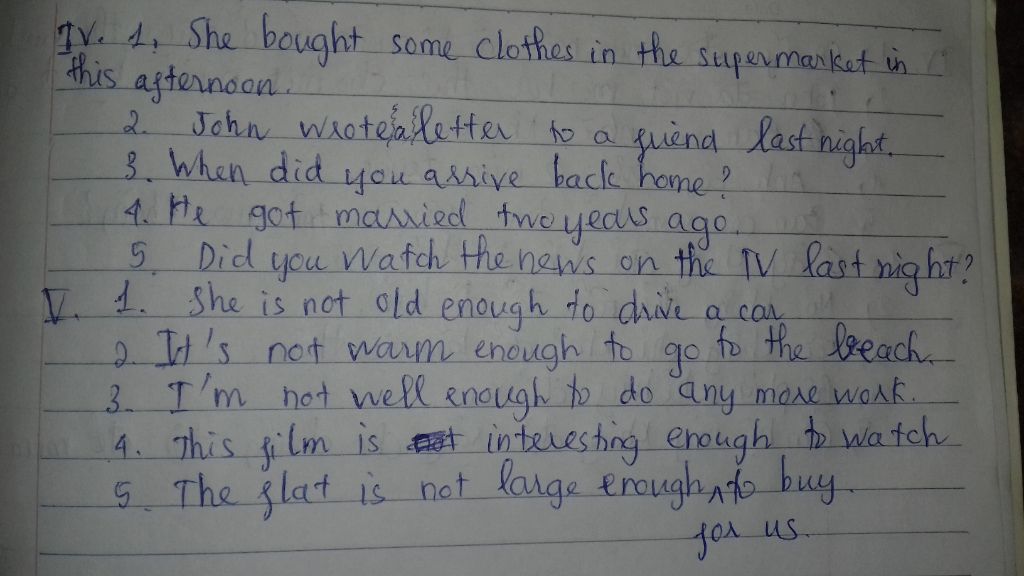 IV. 1, She bought some clothes in the supermarket in
this afternoon.
2. John wrote a letter to a friend last night.
3. When did you arrive back home?
4. He got married two years ago.
5. Did you watch the news on the TV last night?
V. 1. She is not old enough to drive a car
2. It's not warm enough to go to the beach.
3. I'm not well enough to do any more work.
4. This film is interesting enough to watch
5. The flat is not large enough to buy.
for us.